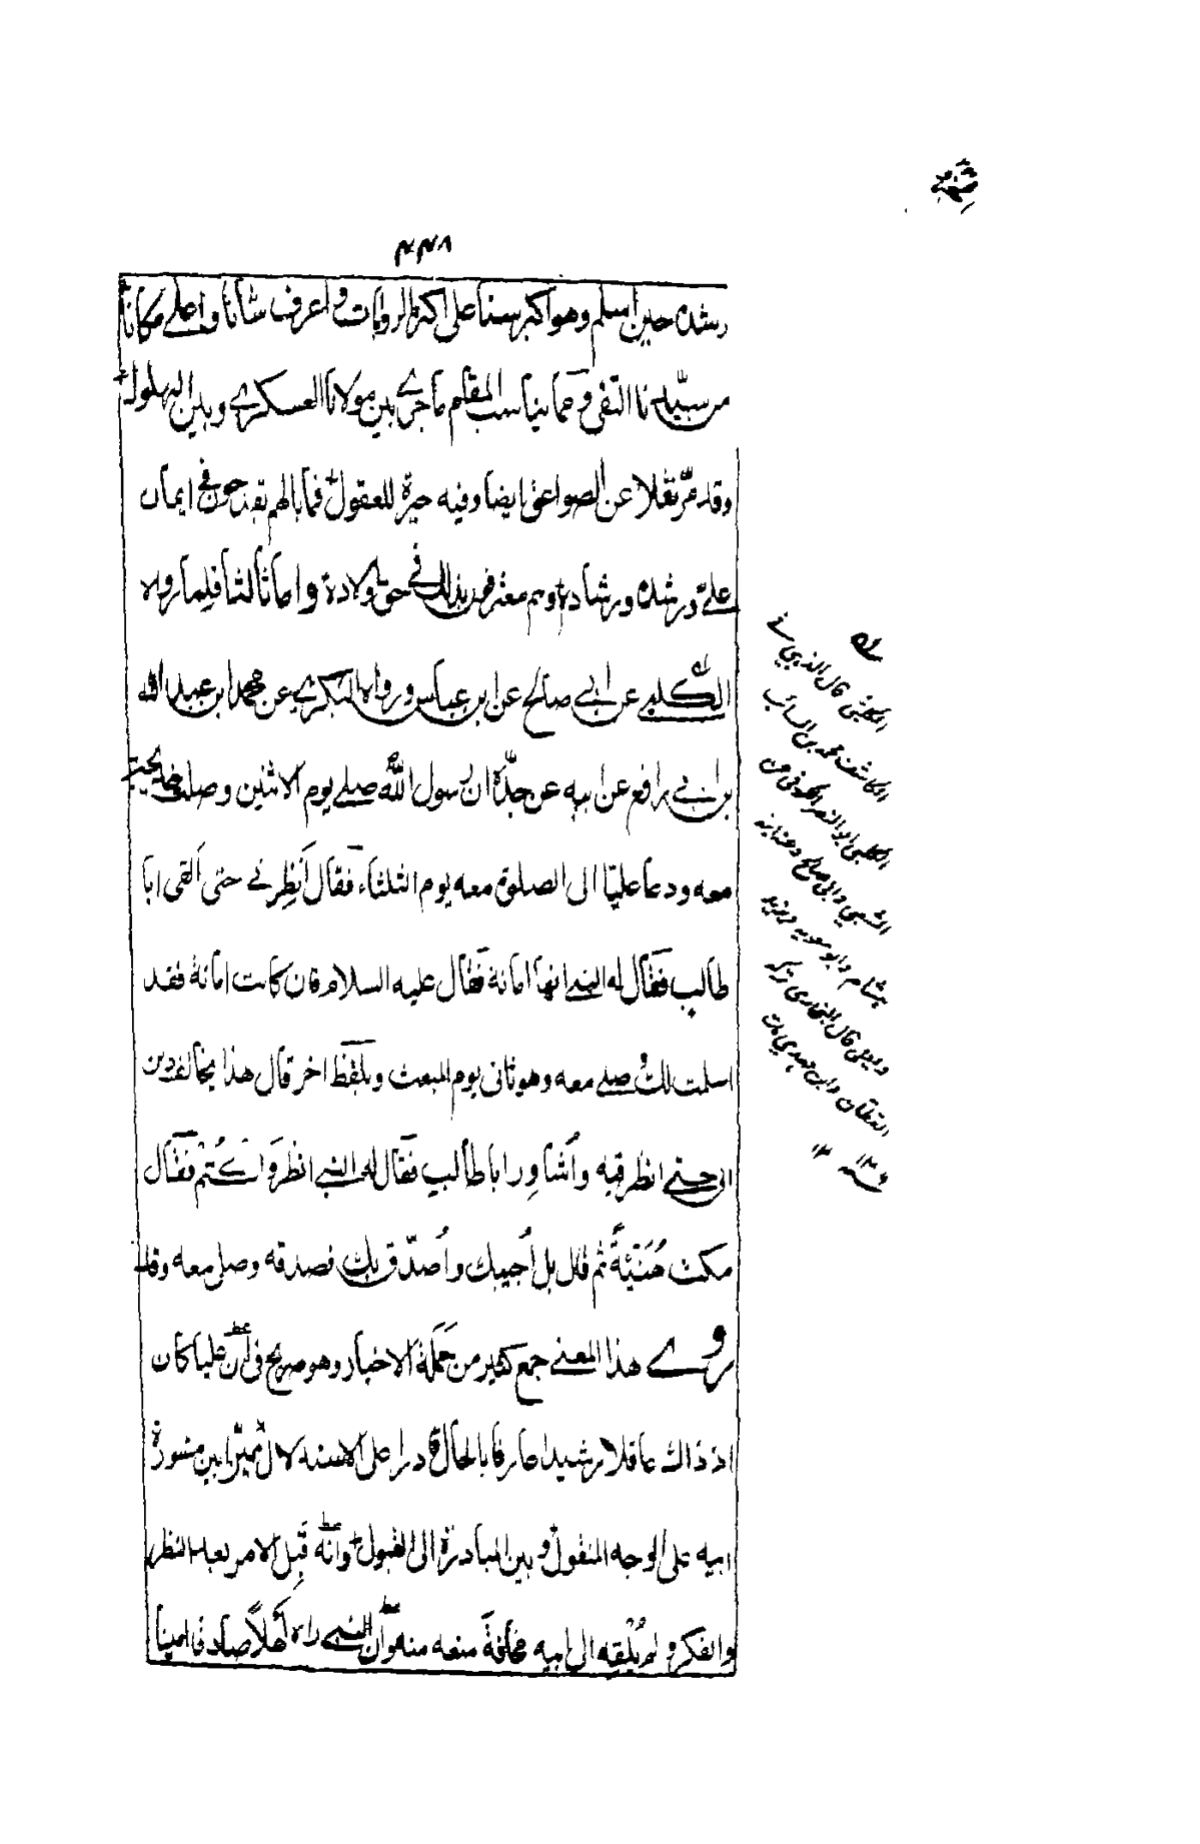 ۴۴۸
رشده حين اسلم وهو اكبر سنا على اكثر الروايات واعرف شانا واعلى مكانا
من سيدنا التقى ومما يناسب المقام ما جرى بين مولانا العسكري وبين البهلول
وقد مر نقلا عن الصواعق ايضا وفيه حيرة للعقول فما بالهم يقدحون في ايمان
علي ورشده ورشاده وهم معترفون بذلك في حق اولاده واما ثالثا فلما رواه
الكلبي عن ابي صالح عن ابن عباس ورواه البكري عن محمد ابن عبد الله
بن ابي رافع عن ابيه عن جده ان رسول الله صلى يوم الاثنين وصلت خديجة
معه ودعا عليّا الى الصلوة معه يوم الثلثاء فقال أَنظِرني حتى ألقى ابا
طالب فقال له النبي انها امانة فقال عليه السلام فان كانت امانة فقد
اسلمت لك وصلى معه وهو ثاني يوم المبعث وبلفظ اخر قال هذا يخالف دين
ابي حتى انظر فيه وأُشاوِر ابا طالب فقال له النبي انظر واكتم فقال
مكث هُنَيّةً ثم قال بل أُجيبك وأُصدّق بك فصدقه وصلى معه وقد
روى هذا المعنى جمع كثير من حَمَلة الاخبار وهو صريح في ان عليا كان
اذ ذاك عاقلا رشيدا عارفا بالحال قادرا على الاستدلال مميّزا بين مشورة
ابيه على الوجه المنقول وبين المبادرة الى القبول وانه قَبِل الامر بعد النظر
والفكر ولم يُلقِه الى ابيه مخافة منعه منه وان النبي راه أهلاً صادقا امينا
له
الكلبي قال الذهبي في
الكاشف محمد بن السائب
الكلبي ابو النضر الكوفي عن
الشعبي وابي صالح وعنه ابنه
هشام وابو معوية ويزيد
ويعلى قال البخاري تركه
القطان وابن مهدي مات